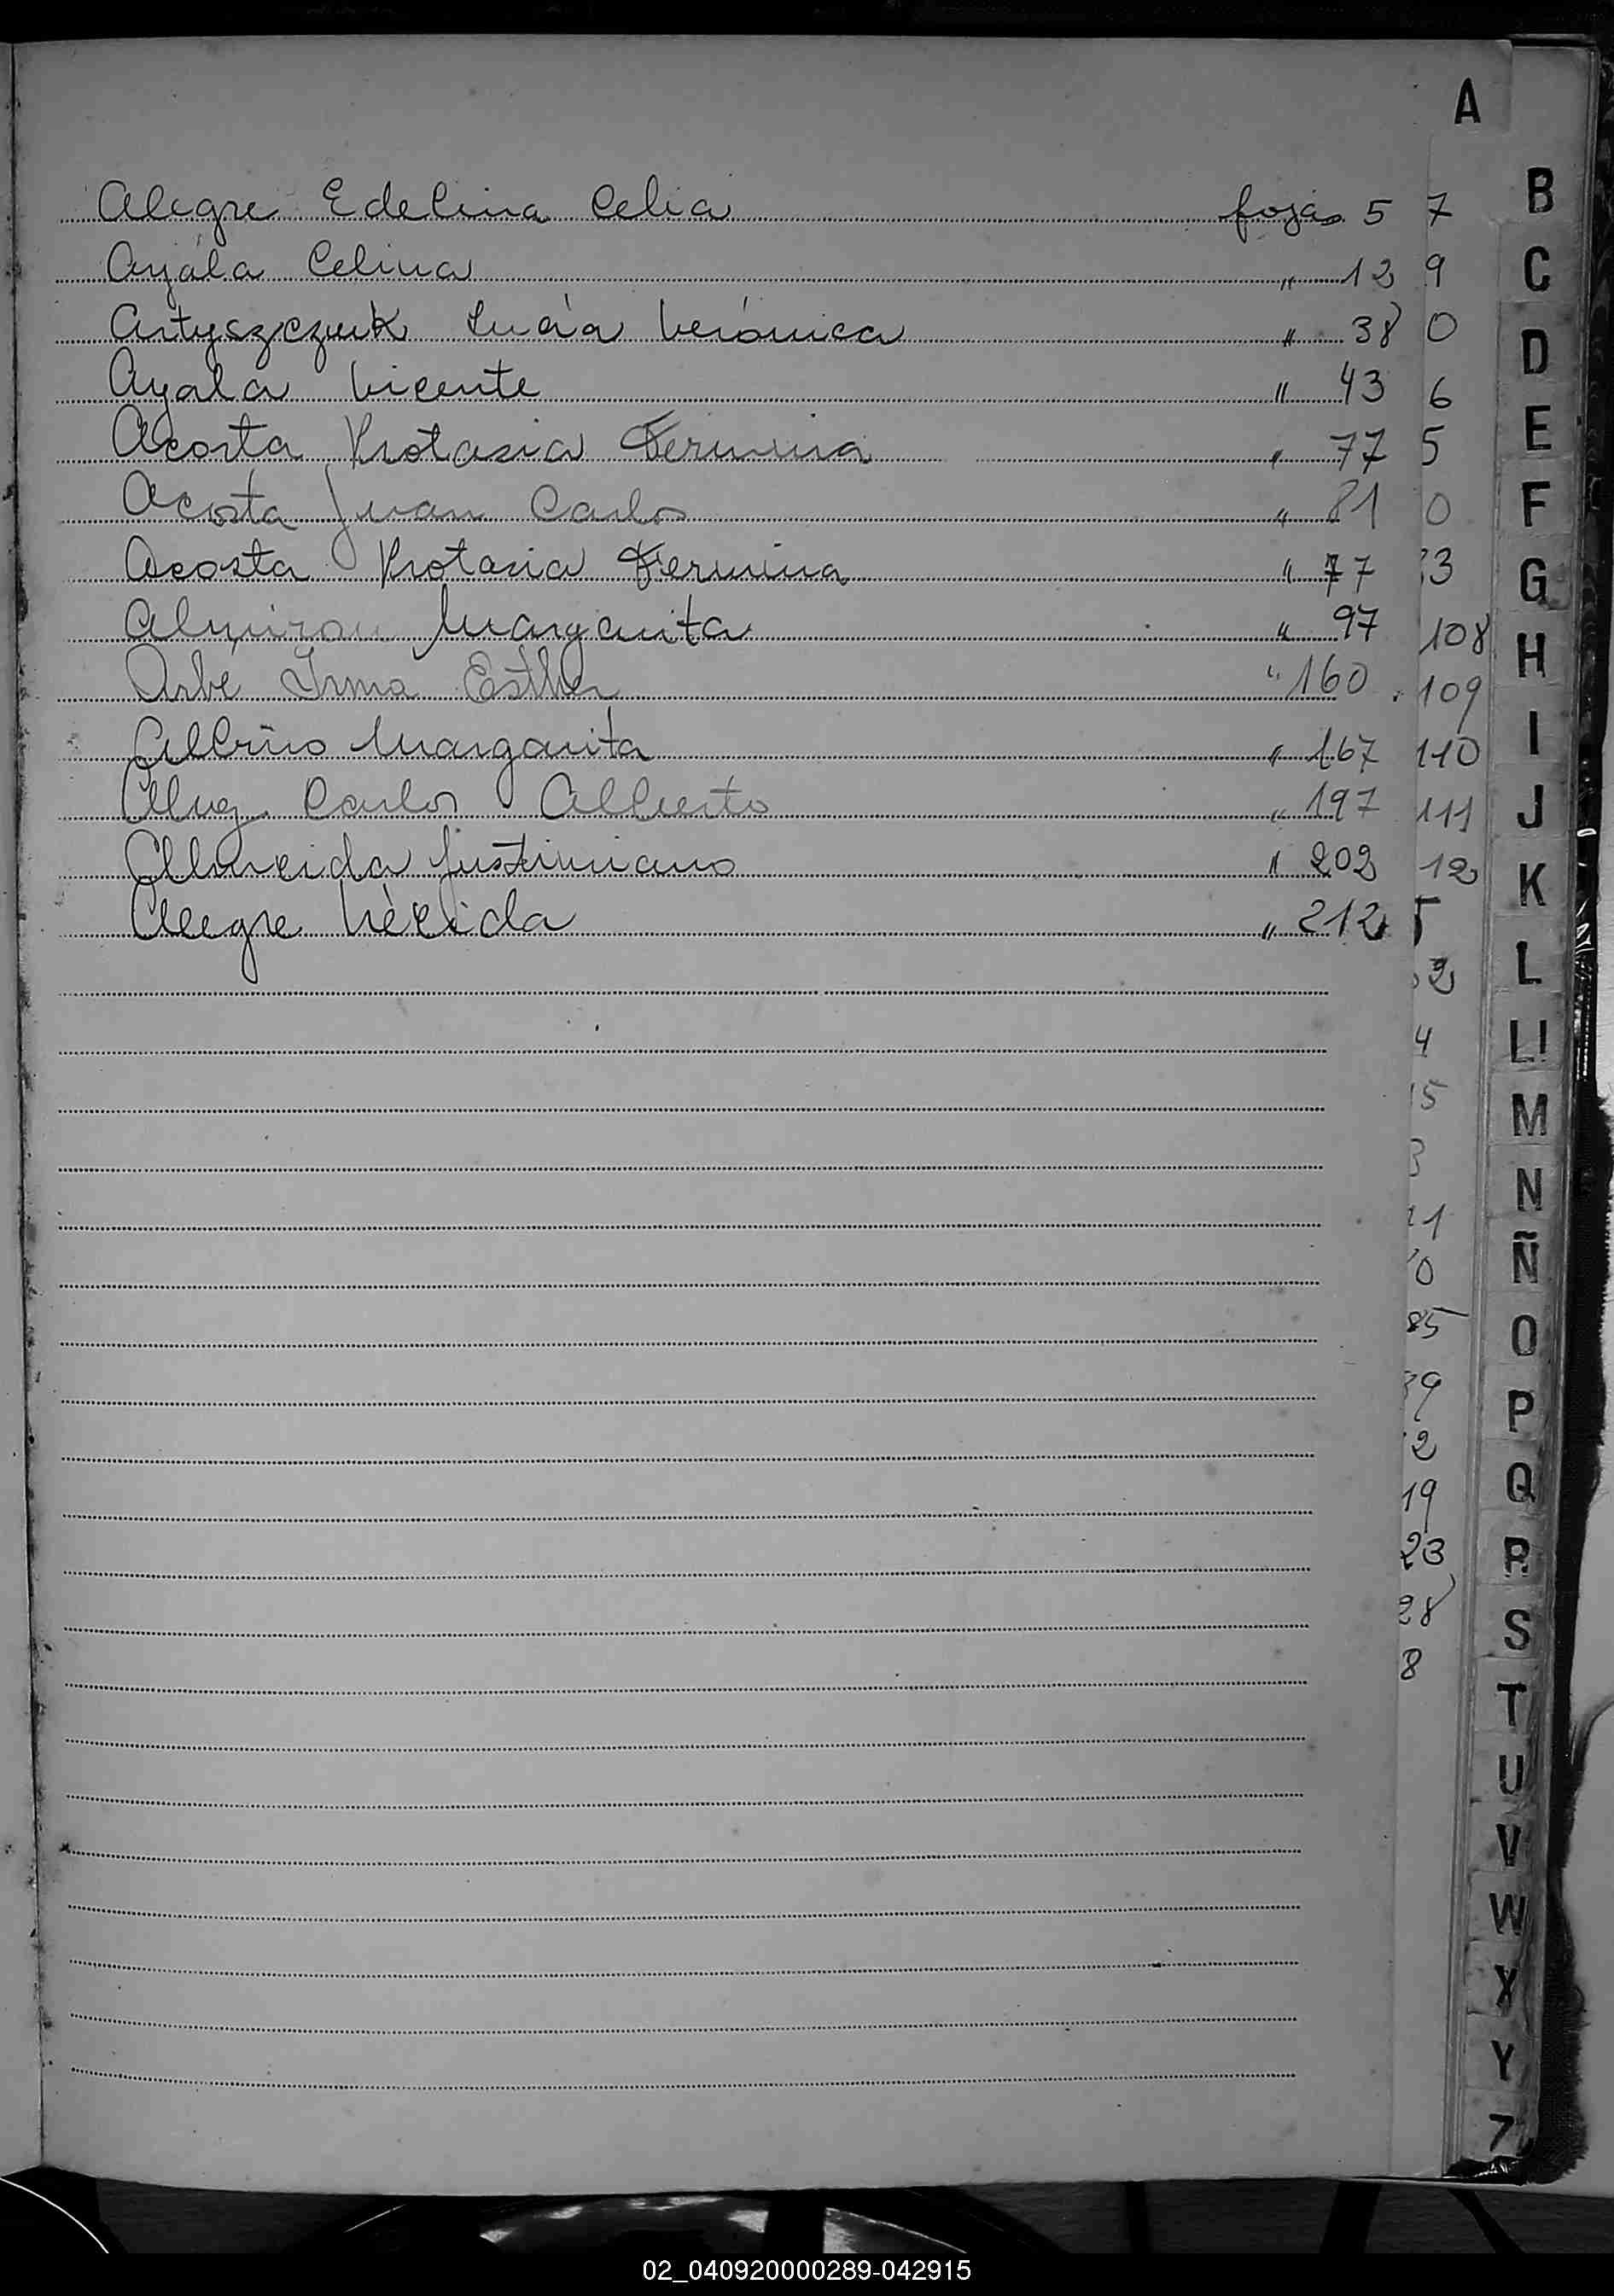 A
Alegre Edelina Celia fojas 5 7
Ayala Celina " 12 9
Artyszczuk Lucía Verónica " 38 0
Ayala Vicente " 43 6
Acosta Protasia Fermina " 77 5
Acosta Juan Carlos " 81 0
Acosta Protasia Fermina " 77 3
Almiron Margarita " 97 108
Arbe Irma Esther " 160 109
Albino Margarita " 167 110
Carlos Alberto " 197 111
Almeida Justiniano " 202 12
Alegre Nélida " 212
2
4
5
3
1
0
85
9
2
19
23
28
8
B
C
D
E
F
G
H
I
J
K
L
Ll
M
N
Ñ
O
P
Q
R
S
T
U
V
W
X
Y
Z
02_040920000289-042915